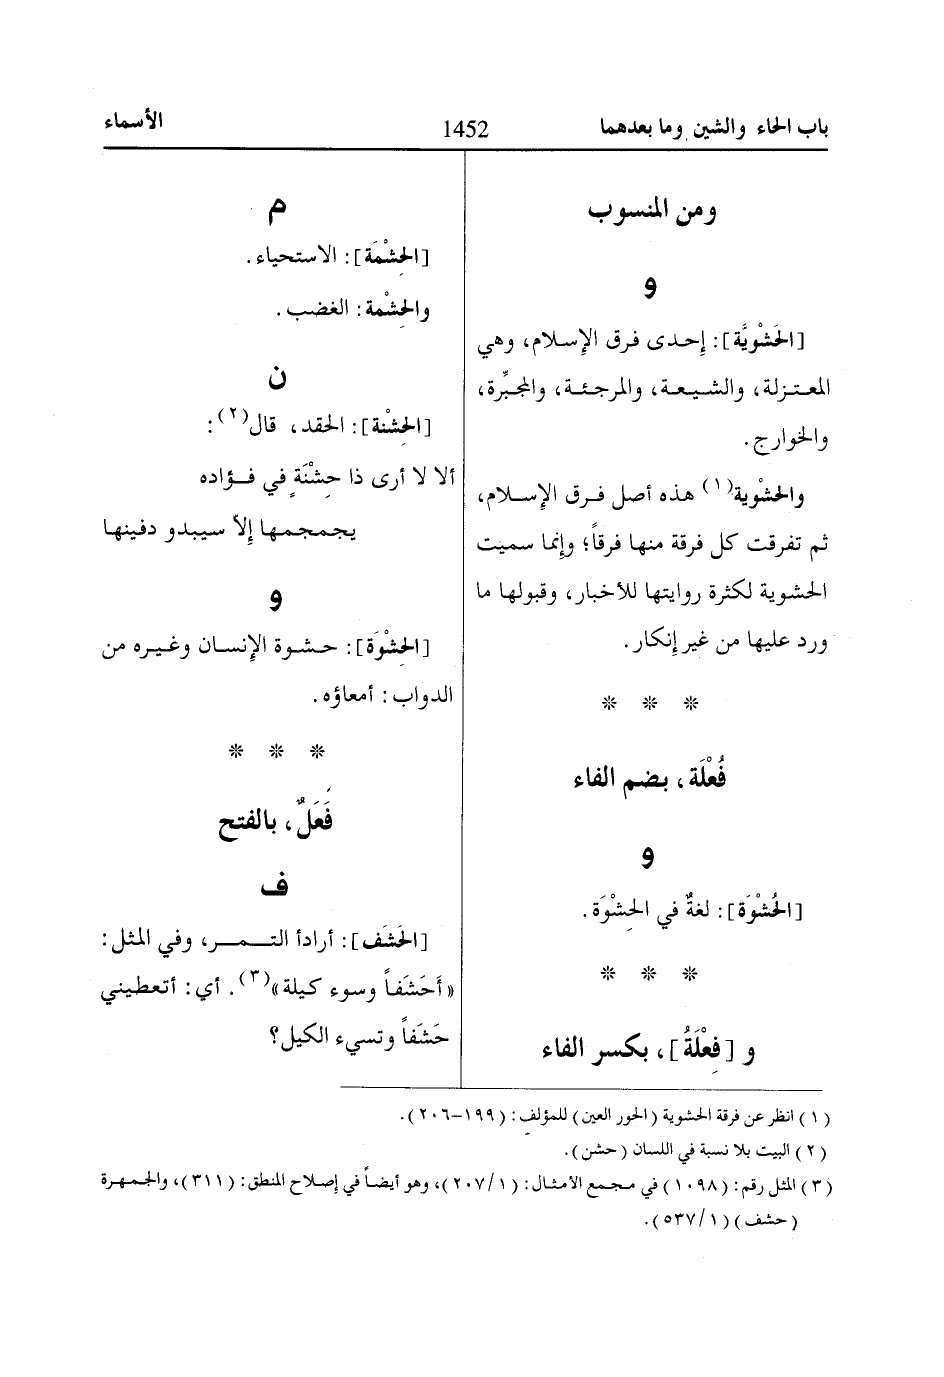 باب الحاء والشين وما بعدهما
1452
الأسماء
ومن المنسوب
و
[الحَشْوِيَّة]: إحدى فرق الإسلام، وهي
المعتزلة، والشيعة، والمرجئة، والمجبِّرة،
والخوارج.
والحشْوية(١) هذه أصل فرق الإسلام،
ثم تفرقت كل فرقة منها فرقاً؛ وإنما سميت
الحشوية لكثرة روايتها للأخبار، وقبولها ما
ورد عليها من غير إنكار.
* * *
فُعْلَة، بضم الفاء
و
[الحُشْوَة]: لغةٌ في الحِشْوَة.
* * *
و [فِعْلَةُ]، بكسر الفاء
م
[الحِشْمَة]: الاستحياء.
والحِشْمة: الغضب.
ن
[الحِشْنة]: الحقد، قال(٢):
ألا لا أرى ذا حِشْنَةٍ في فؤاده
يجمجمها إلاّ سيبدو دفينها
و
[الحِشْوَة]: حشوة الإنسان وغيره من
الدواب: أمعاؤه.
* * *
فَعَلٌ، بالفتح
ف
[الحَشَف]: أرادأ التمر، وفي المثل:
«أحَشَفاً وسوء كيلة»(٣). أي: أتعطيني
حَشَفاً وتسيء الكيل؟
(١) انظر عن فرقة الحشوية (الحور العين) للمؤلف: (١٩٩-٢٠٦).
(٢) البيت بلا نسبة في اللسان (حشن).
(٣) المثل رقم: (١٠٩٨) في مجمع الأمثال: (٢٠٧/١)، وهو أيضاً في إصلاح المنطق: (٣١١)، والجمهرة
(حشف) (٥٣٧/١).